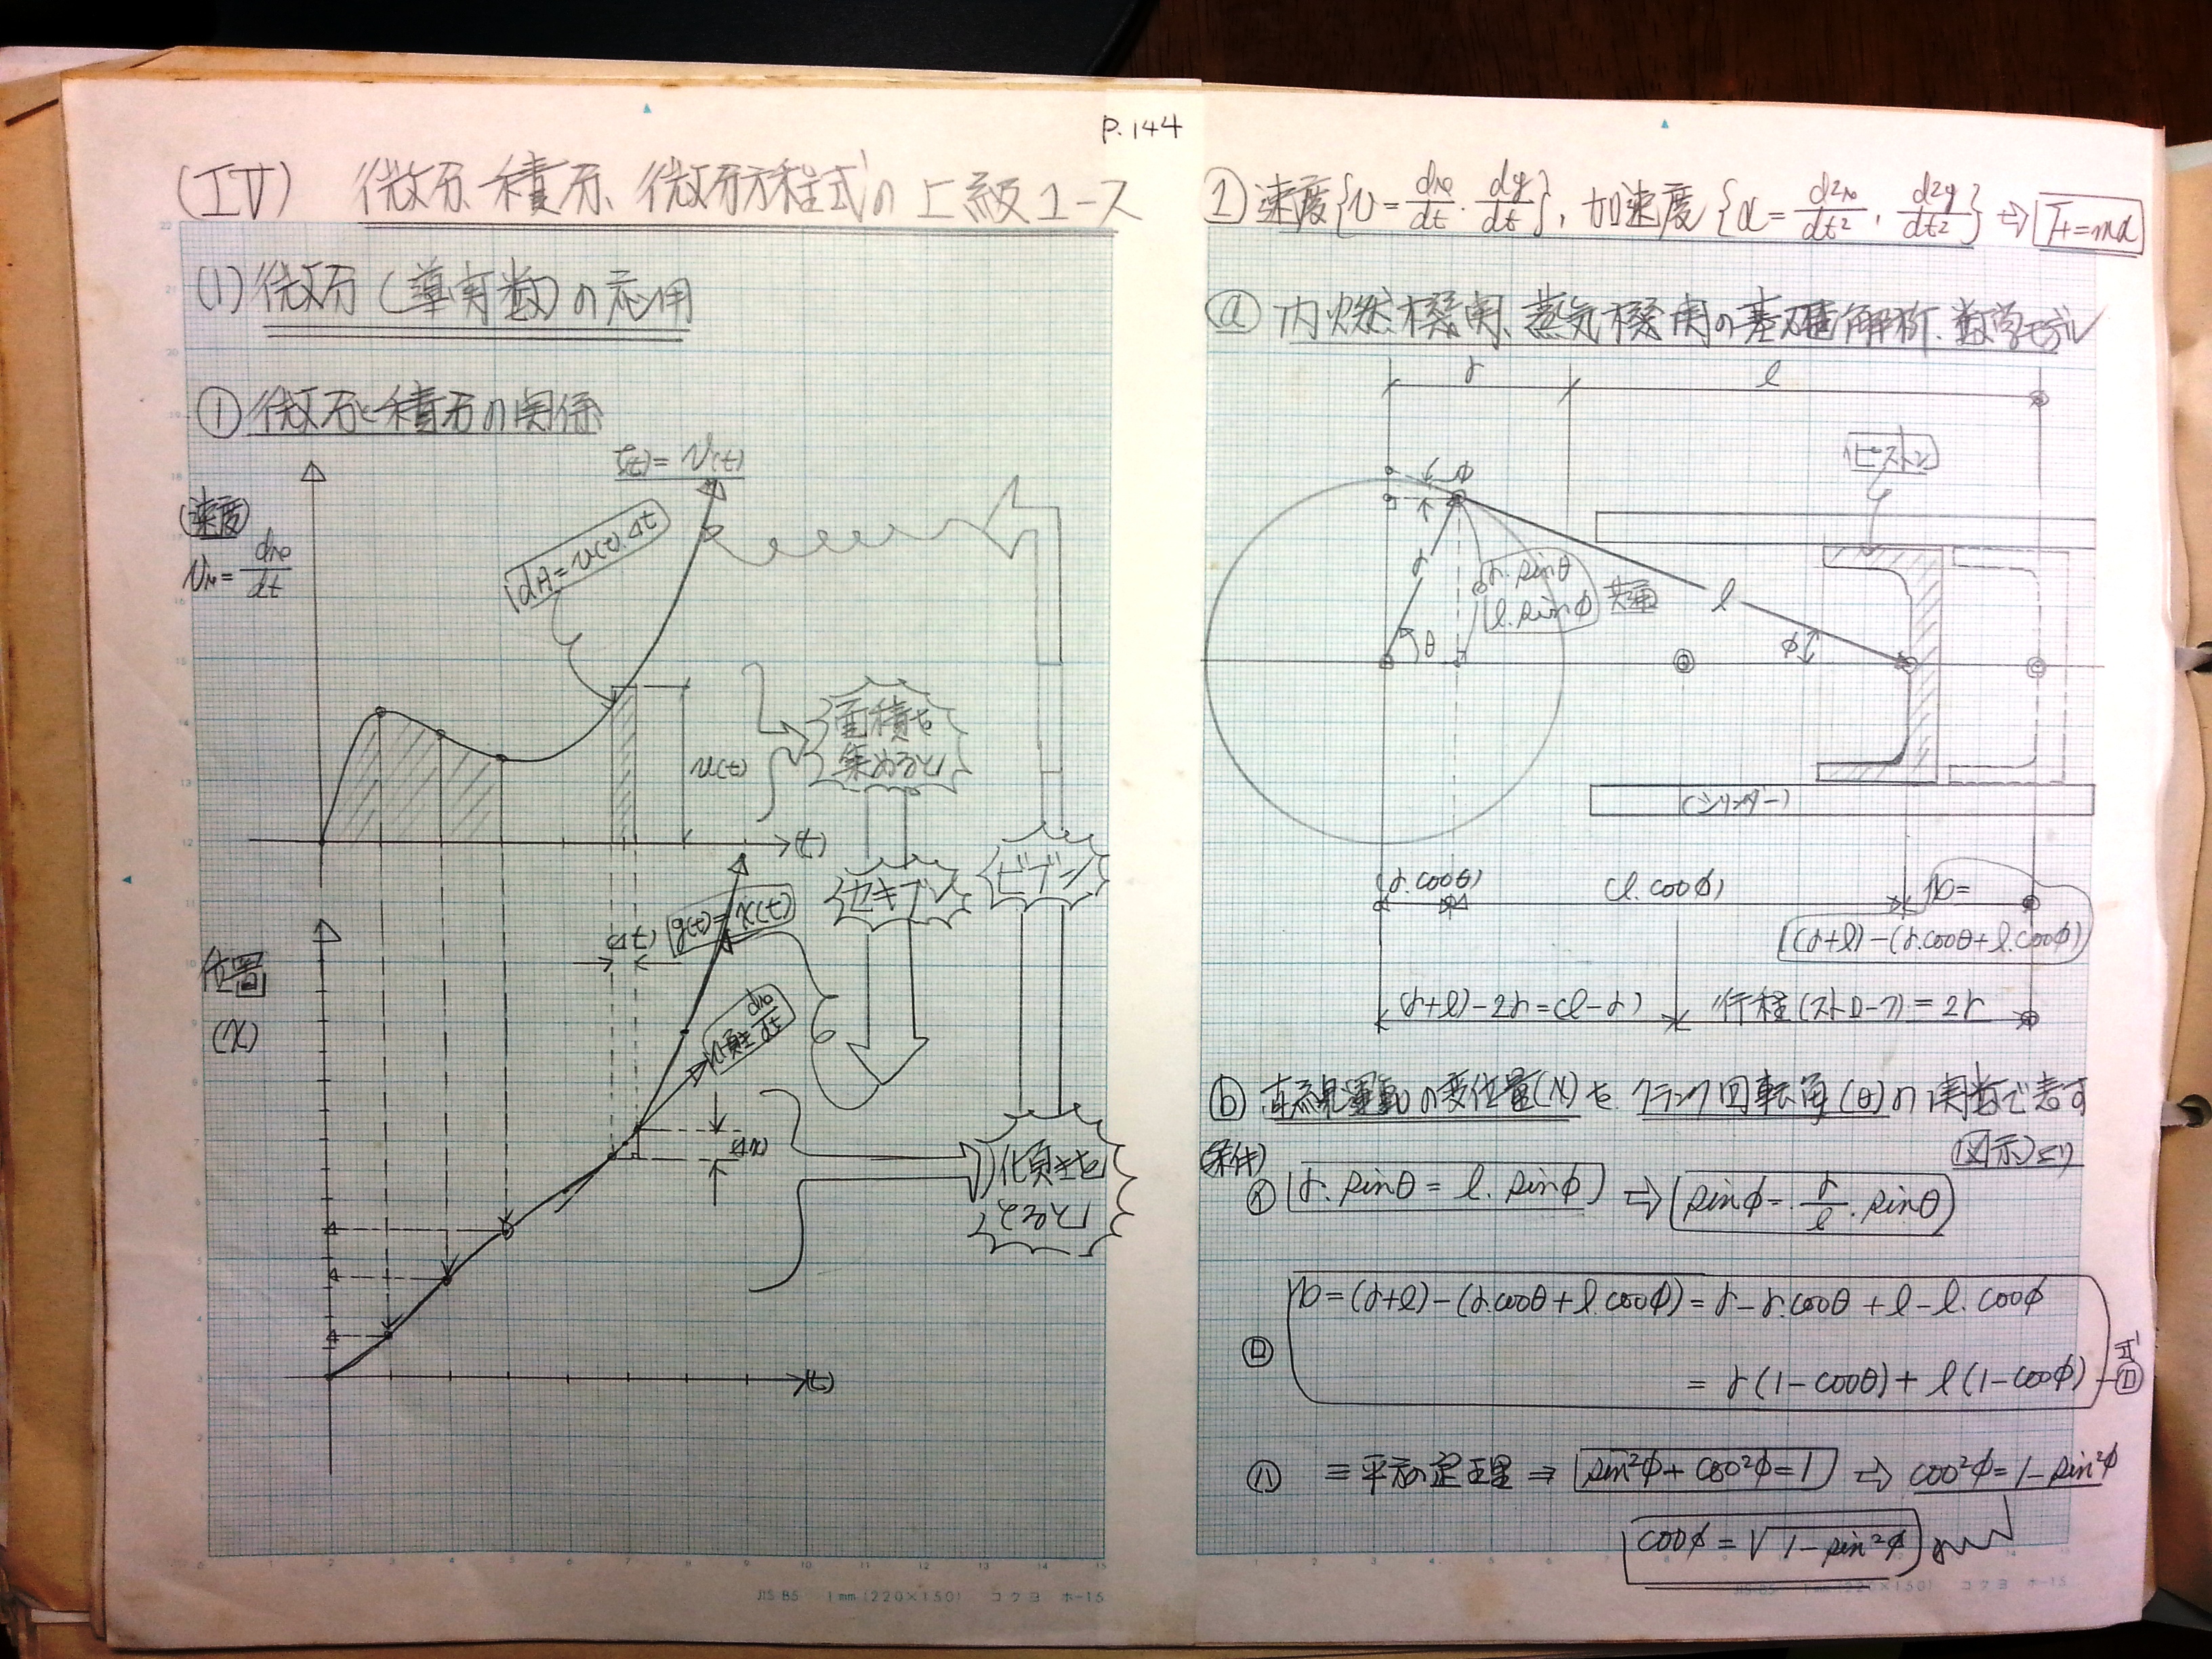 P.144
(IV) 微分、積分、微分方程式の上級コース
(1) 微分(導関数)の応用
① 微分と積分の関係
f(t)=v(t)
(速度)
vx=dx/dt
dA=v(t)・Δt
v(t)
面積を
集めると
(t)
セキブン
ビブン
g(t)=x(t)
(Δt)
位置
(x)
傾き dx/dt
(Δx)
傾きを
とると
(t)
JIS B5 1mm(220×150) コクヨ ホ-15
② 速度{v=dx/dt・dy/dt}, 加速度{α=d²x/dt², d²y/dt²}⇒F=mα
ⓐ 内燃機関、蒸気機関の基礎解析、数学モデル
r
l
(ピストン)
φ
r
r・sinθ
l・sinφ
共通
l
θ
φ
(シリンダー)
(r・cosθ)
(l・cosφ)
x=
(r+l)-(r・cosθ+l・cosφ)
(r+l)-2r=(l-r)
行程(ストローク)=2r
ⓑ 直線運動の変位量(x)を、クランク回転角(θ)の関数で表す
(条件)
(図示)より
㋑ r・sinθ=l・sinφ ⇒ sinφ=r/l・sinθ
㋺ x=(r+l)-(r・cosθ+l・cosφ)=r-r・cosθ+l-l・cosφ
=r(1-cosθ)+l(1-cosφ) 式㋺
㋩ 三平方の定理⇒ sin²φ+cos²φ=1 ⇒ cos²φ=1-sin²φ
cosφ=√1-sin²φ
JIS B5 1mm(220×150) コクヨ ホ-15